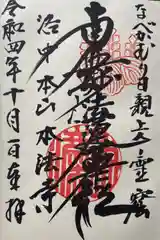 ながもり日親上人霊窟
南無妙法蓮華経
洛中本山本法寺
令和四年十月一日奉拝